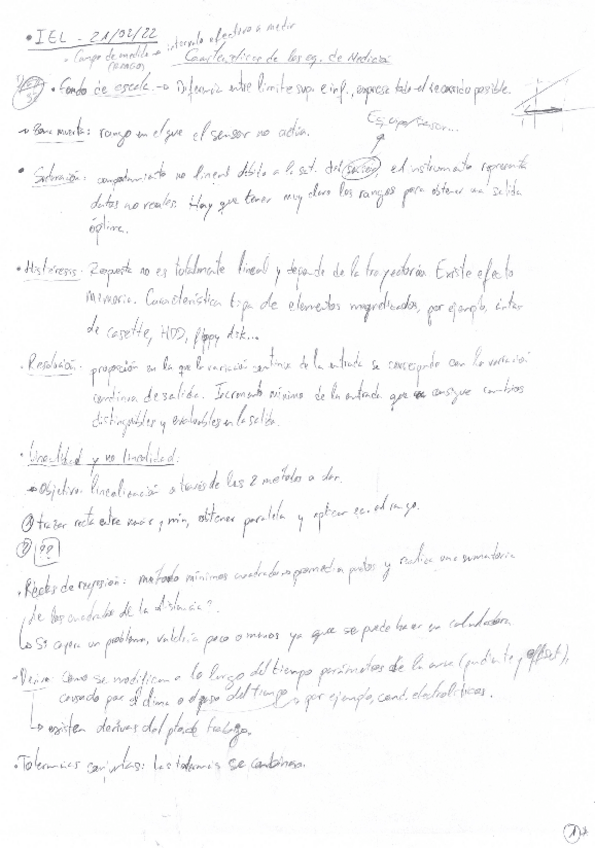 • IEL - 21/02/22
• Campo de medida → intervalo efectivo a medir
(RANGO)
Características de los eq. de Medición
• Fondo de escala → Diferencia entre límite sup. e inf., expresa todo el recorrido posible.
→ Zona muerta: rango en el que el sensor no actúa.
Ej:
• Saturación: comportamiento no lineal debido a la sat. del sensor, el instrumento representa
datos no reales. Hay que tener muy claro los rangos para obtener una salida
óptima.
• Histéresis. Respuesta no es totalmente lineal y depende de la trayectoria. Existe efecto
memoria. Característica típica de elementos magnetizados, por ejemplo, cintas
de casette, HDD, floppy disk...
• Resolución. proporción en la que la variación continua de la entrada se corresponde con la variación
continua de salida. Incremento mínimo de la entrada que consigue cambios
distinguibles y evaluables en la salida.
• Linealidad y no linealidad:
→ Objetivo: linealización a través de los 2 métodos a dar.
① trazar recta entre máx y min, obtener paralela y aplicar ec. al rango.
② ??
• Rectas de regresión: método mínimos cuadrados promedia puntos y realiza una sumatoria
¿de los cuadrados de la distancia?.
↳ Si cayera un problema, valdría poco o menos ya que se puede hacer en calculadora
• Deriva: Cómo se modifican a lo largo del tiempo parámetros de la curva (pendiente y offset),
causado por el clima o el paso del tiempo → por ejemplo, cond. electrolíticos.
↳ existen derivas del pto de trabajo.
• Tolerancias conjuntas: las tolerancias se combinan.
1